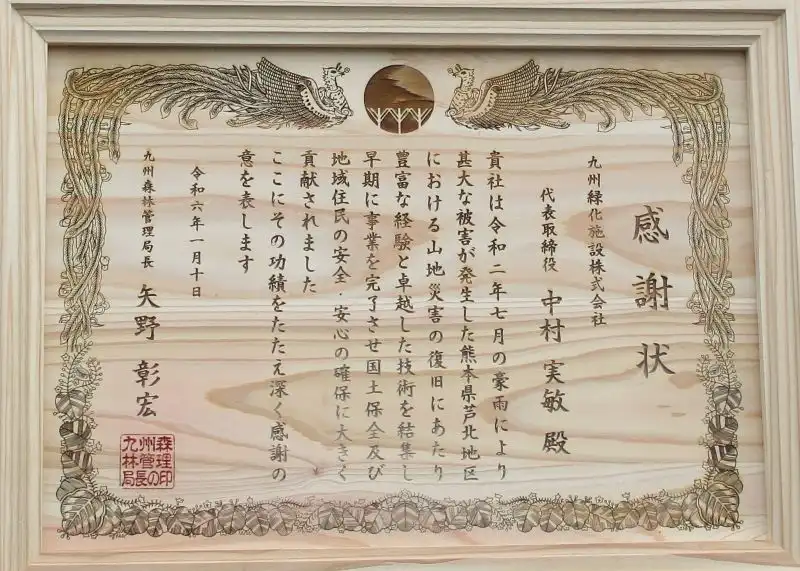 感謝状
九州緑化施設株式会社
代表取締役 中村 実敏 殿
貴社は令和二年七月の豪雨により
甚大な被害が発生した熊本県芦北地区
における山地災害の復旧にあたり
豊富な経験と卓越した技術を結集し
早期に事業を完了させ国土保全及び
地域住民の安全・安心の確保に大きく
貢献されました
ここにその功績をたたえ深く感謝の
意を表します
令和六年一月十日
九州森林管理局長 矢野 彰宏
九州森
林管理
局長の印